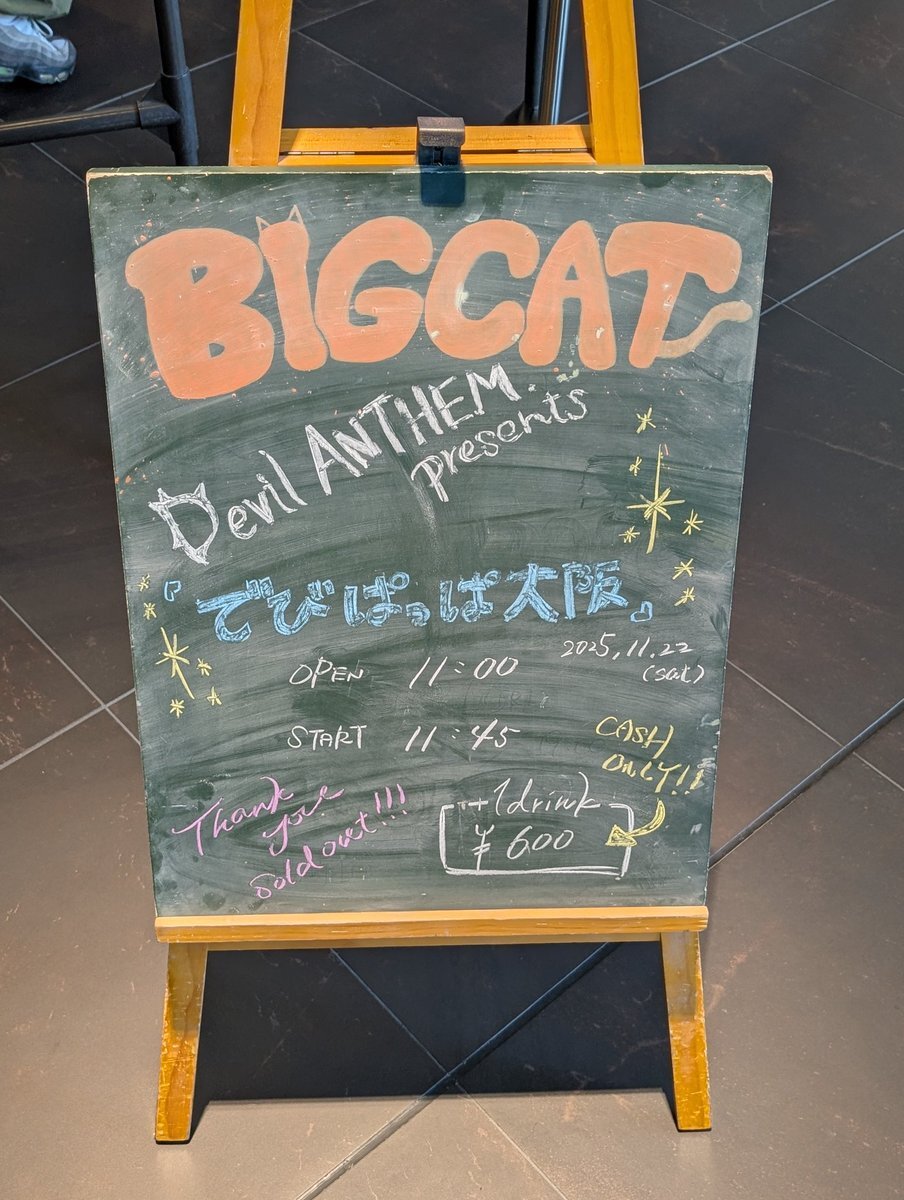 BIGCAT
Devil ANTHEM.
presents
『でびぱっぱ大阪』
2025.11.22
(sat)
OPEN 11:00
START 11:45
CASH
ONLY!!
Thank
you
sold out!!!
+1drink
¥600